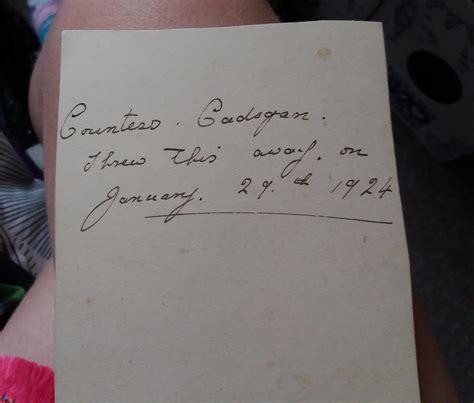 Countess. Cadogan.
Threw this away, on
January. 29.th 1924